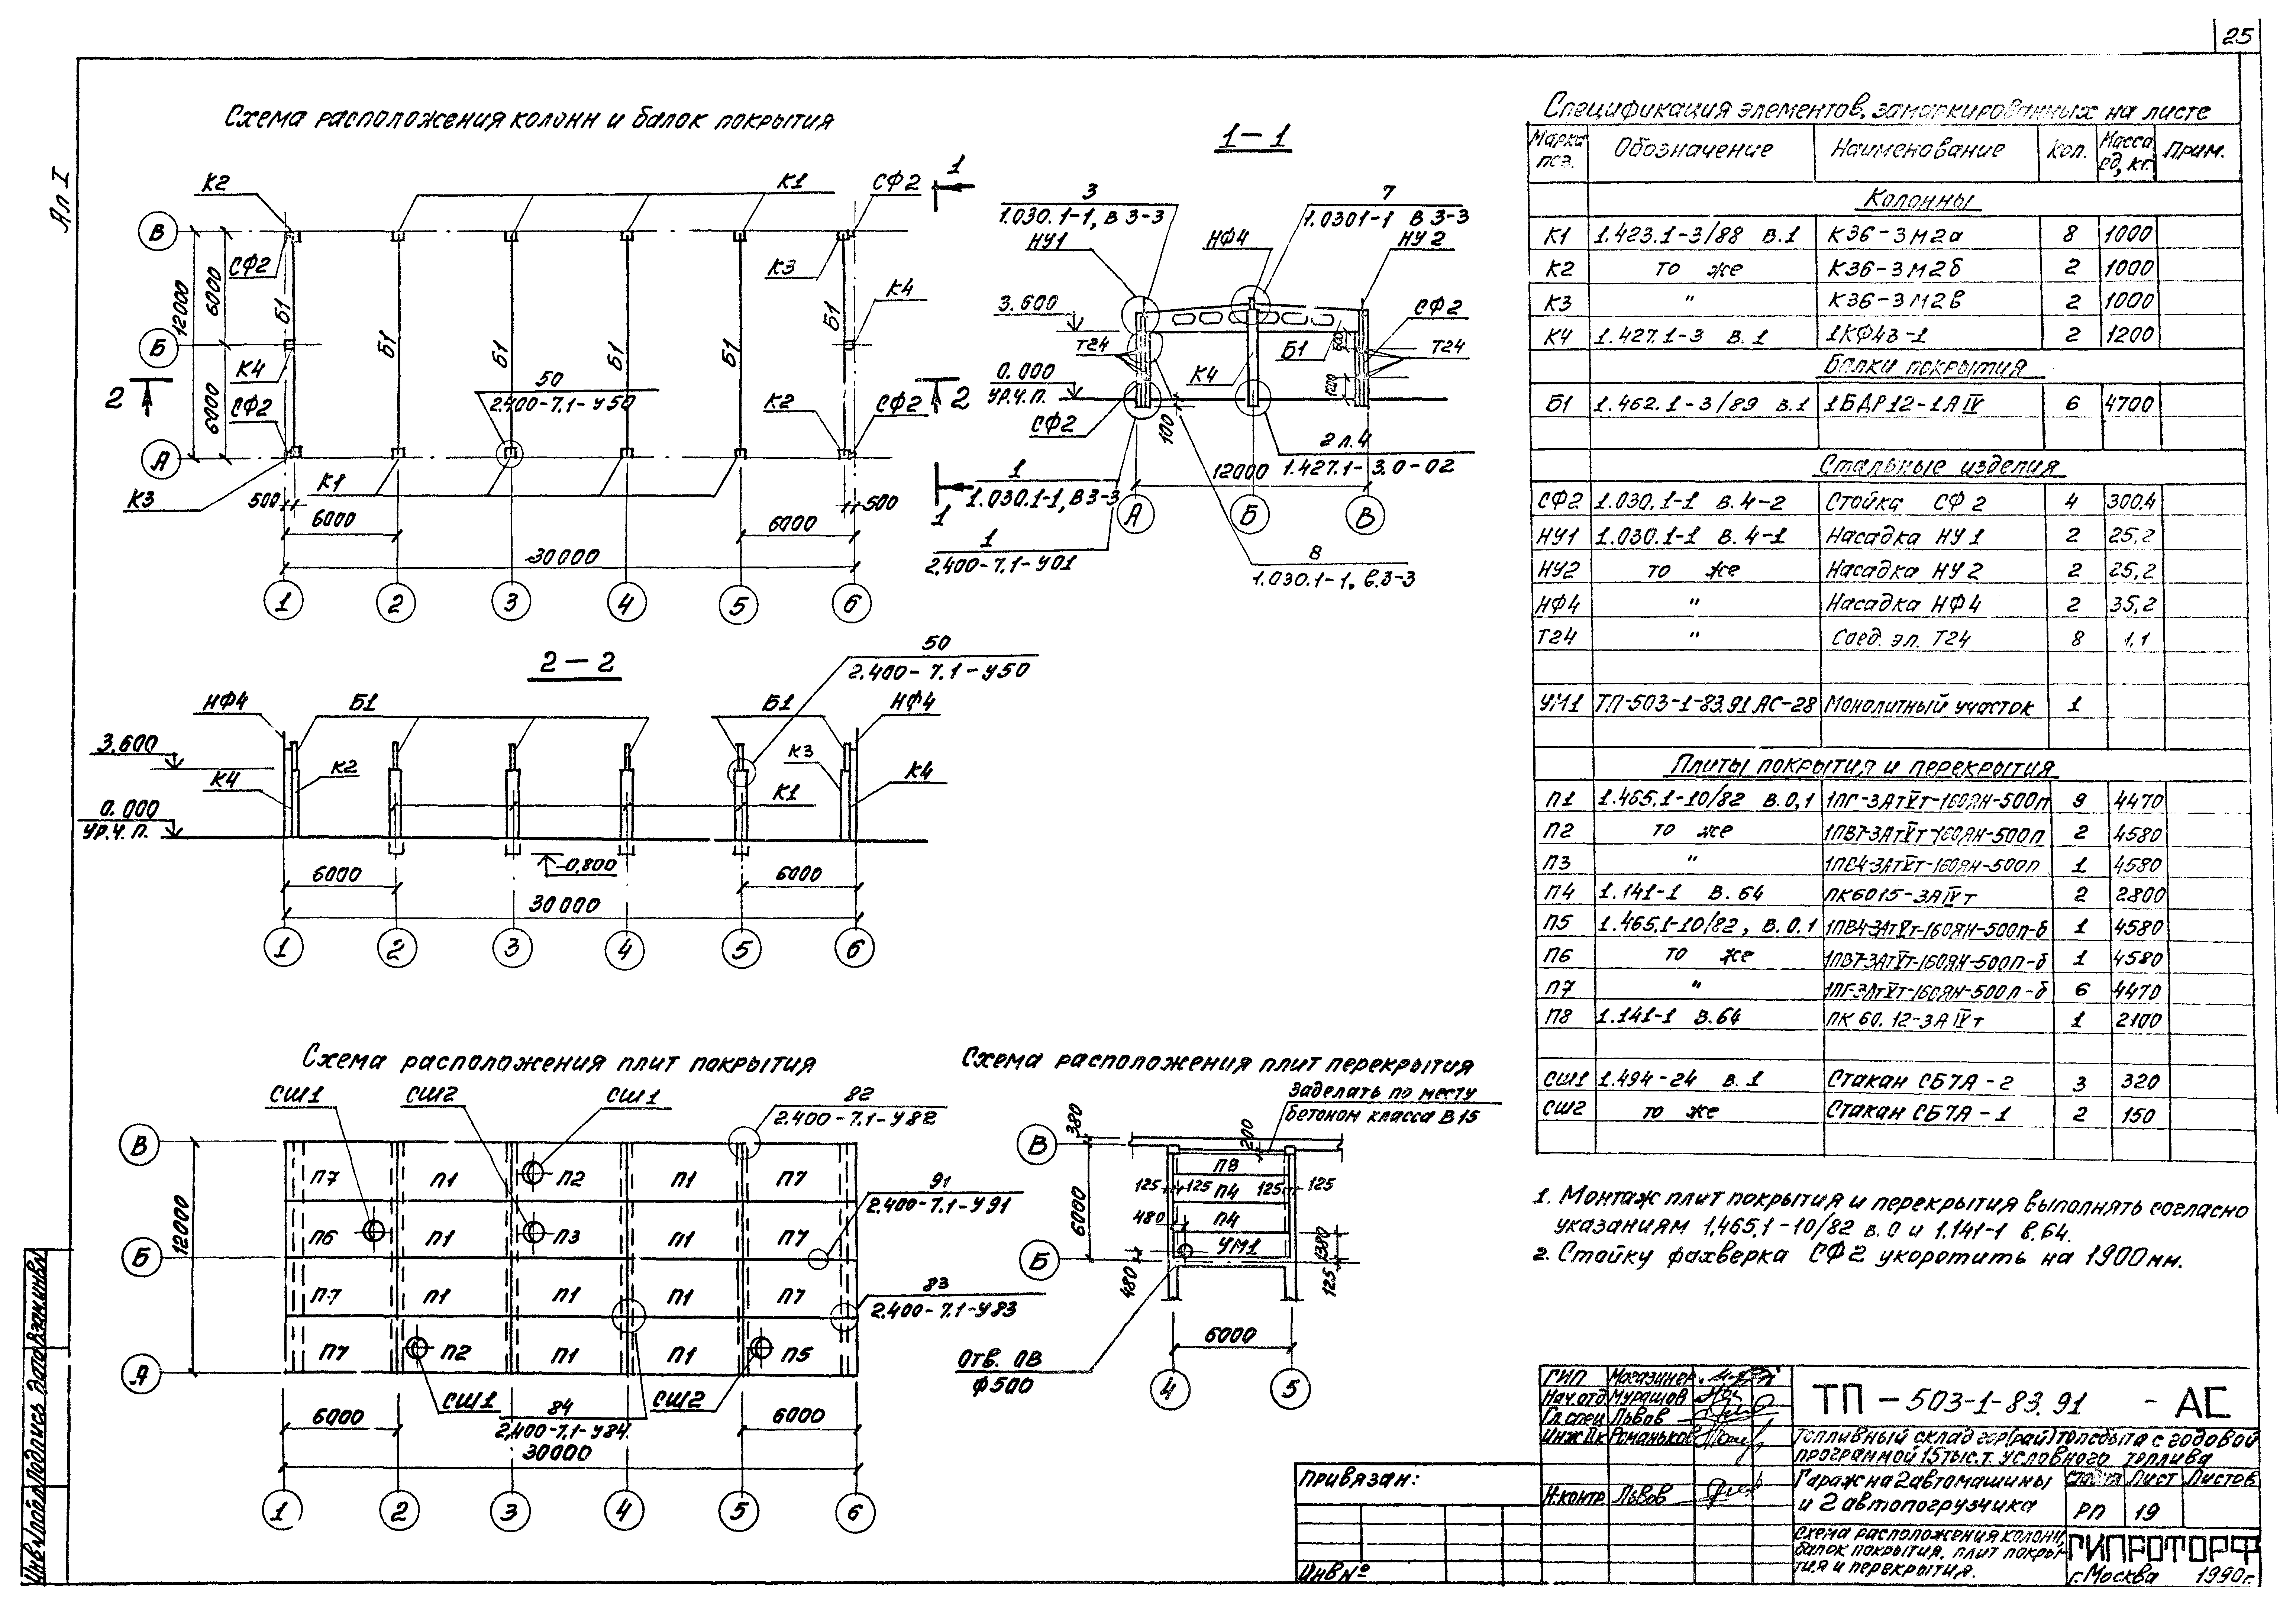 25
Ал I
Схема расположения колонн и балок покрытия
К2
К1
СФ2
1
В
СФ2
К3
К4
12000
6000
6000
Б1
Б1
Б1
Б1
Б1
Б1
Б
К4
СФ2
2
50
2.400-7.1-У50
К2
СФ2
2
А
К3
К1
500
500
1
6000
6000
30000
1 2 3 4 5 6
1-1
3
1.030.1-1, В 3-3
НУ1
НФ4
7
1.0301-1 В 3-3
НУ2
3.600
СФ2
Т24
Б1
Т24
0.000
УР.Ч.П.
К4
СФ2
100
2 л.4
1.427.1-3.0-02
12000
1
1.030.1-1, В3-3
А Б В
1
2.400-7.1-У01
8
1.030.1-1, в.3-3
2-2
50
2.400-7.1-У50
НФ4
Б1
Б1
НФ4
3.600
К4
К2
К3
К4
К1
0.000
УР.Ч.П.
-0,800
6000
6000
30000
1 2 3 4 5 6
Схема расположения плит покрытия
СШ1
СШ2
СШ1
82
2.400-7.1-У82
В
П7 П1 П2 П1 П7
91
2.400-7.1-У91
12000
П6 П1 П3 П1 П7
Б
П7 П1 П1 П1 П7
83
2.400-7.1-У83
П7 П2 П1 П1 П5
А
СШ1
84
2.400-7.1-У84
СШ2
6000
6000
30000
1 2 3 4 5 6
Схема расположения плит перекрытия
Заделать по месту
бетоном класса В15
380
200
В
П8
125 125 125 125
П4
6000
480
П4
УМ1
1380
Б
480
125
6000
Отв. ОВ
ф500
4 5
Спецификация элементов, замаркированных на листе
Марка поз. Обозначение Наименование Кол. Масса ед, кг. Прим.
Колонны
К1 1.423.1-3/88 в.1 К36-3М2а 8 1000
К2 то же К36-3М2б 2 1000
К3 " К36-3М2в 2 1000
К4 1.427.1-3 в.1 1КФ43-1 2 1200
Балки покрытия
Б1 1.462.1-3/89 в.1 1БДР12-1АIV 6 4700
Стальные изделия
СФ2 1.030.1-1 в.4-2 Стойка СФ2 4 300.4
НУ1 1.030.1-1 в.4-1 Насадка НУ1 2 25,2
НУ2 то же Насадка НУ2 2 25,2
НФ4 " Насадка НФ4 2 35,2
Т24 " Соед. эл. Т24 8 1,1
УМ1 ТП-503-1-83.91 АС-28 Монолитный участок 1
Плиты покрытия и перекрытия
П1 1.465.1-10/82 в.0,1 1ПГ-3АтVт-160ЯН-500п 9 4470
П2 то же 1ПВ7-3АтVт-160ЯН-500п 2 4580
П3 " 1ПВ4-3АтVт-160ЯН-500п 1 4580
П4 1.141-1 в.64 ПК6015-3АIVт 2 2800
П5 1.465.1-10/82, в.0.1 1ПВ4-3АтVт-160ЯН-500п-б 1 4580
П6 то же 1ПВ7-3АтVт-160ЯН-500п-б 1 4580
П7 " 1ПГ-3АтVт-160ЯН-500п-б 6 4470
П8 1.141-1 в.64 ПК 60.12-3АIVт 1 2100
СШ1 1.494-24 в.1 Стакан СБ7А-2 3 320
СШ2 то же Стакан СБ7А-1 2 150
1. Монтаж плит покрытия и перекрытия выполнять согласно
указаниям 1.465.1-10/82 в.0 и 1.141-1 в.64.
2. Стойку фахверка СФ2 укоротить на 1900мм.
ГИП Магазинер
Нач.отд Мурашов
Гл.спец Львов
Инж IIк Романьков
Н.контр Львов
ТП-503-1-83.91 -АС
Топливный склад гор(рай)топсбыта с годовой
программой 15тыс.т. условного топлива
Гараж на 2 автомашины
и 2 автопогрузчика
Стадия Лист Листов
РП 19
Схема расположения колонн,
балок покрытия, плит покры-
тия и перекрытия.
ГИПРОТОРФ
г.Москва 1990г.
Привязан:
Инв №
Инв.№ подл. Подпись и дата Взам.инв.№